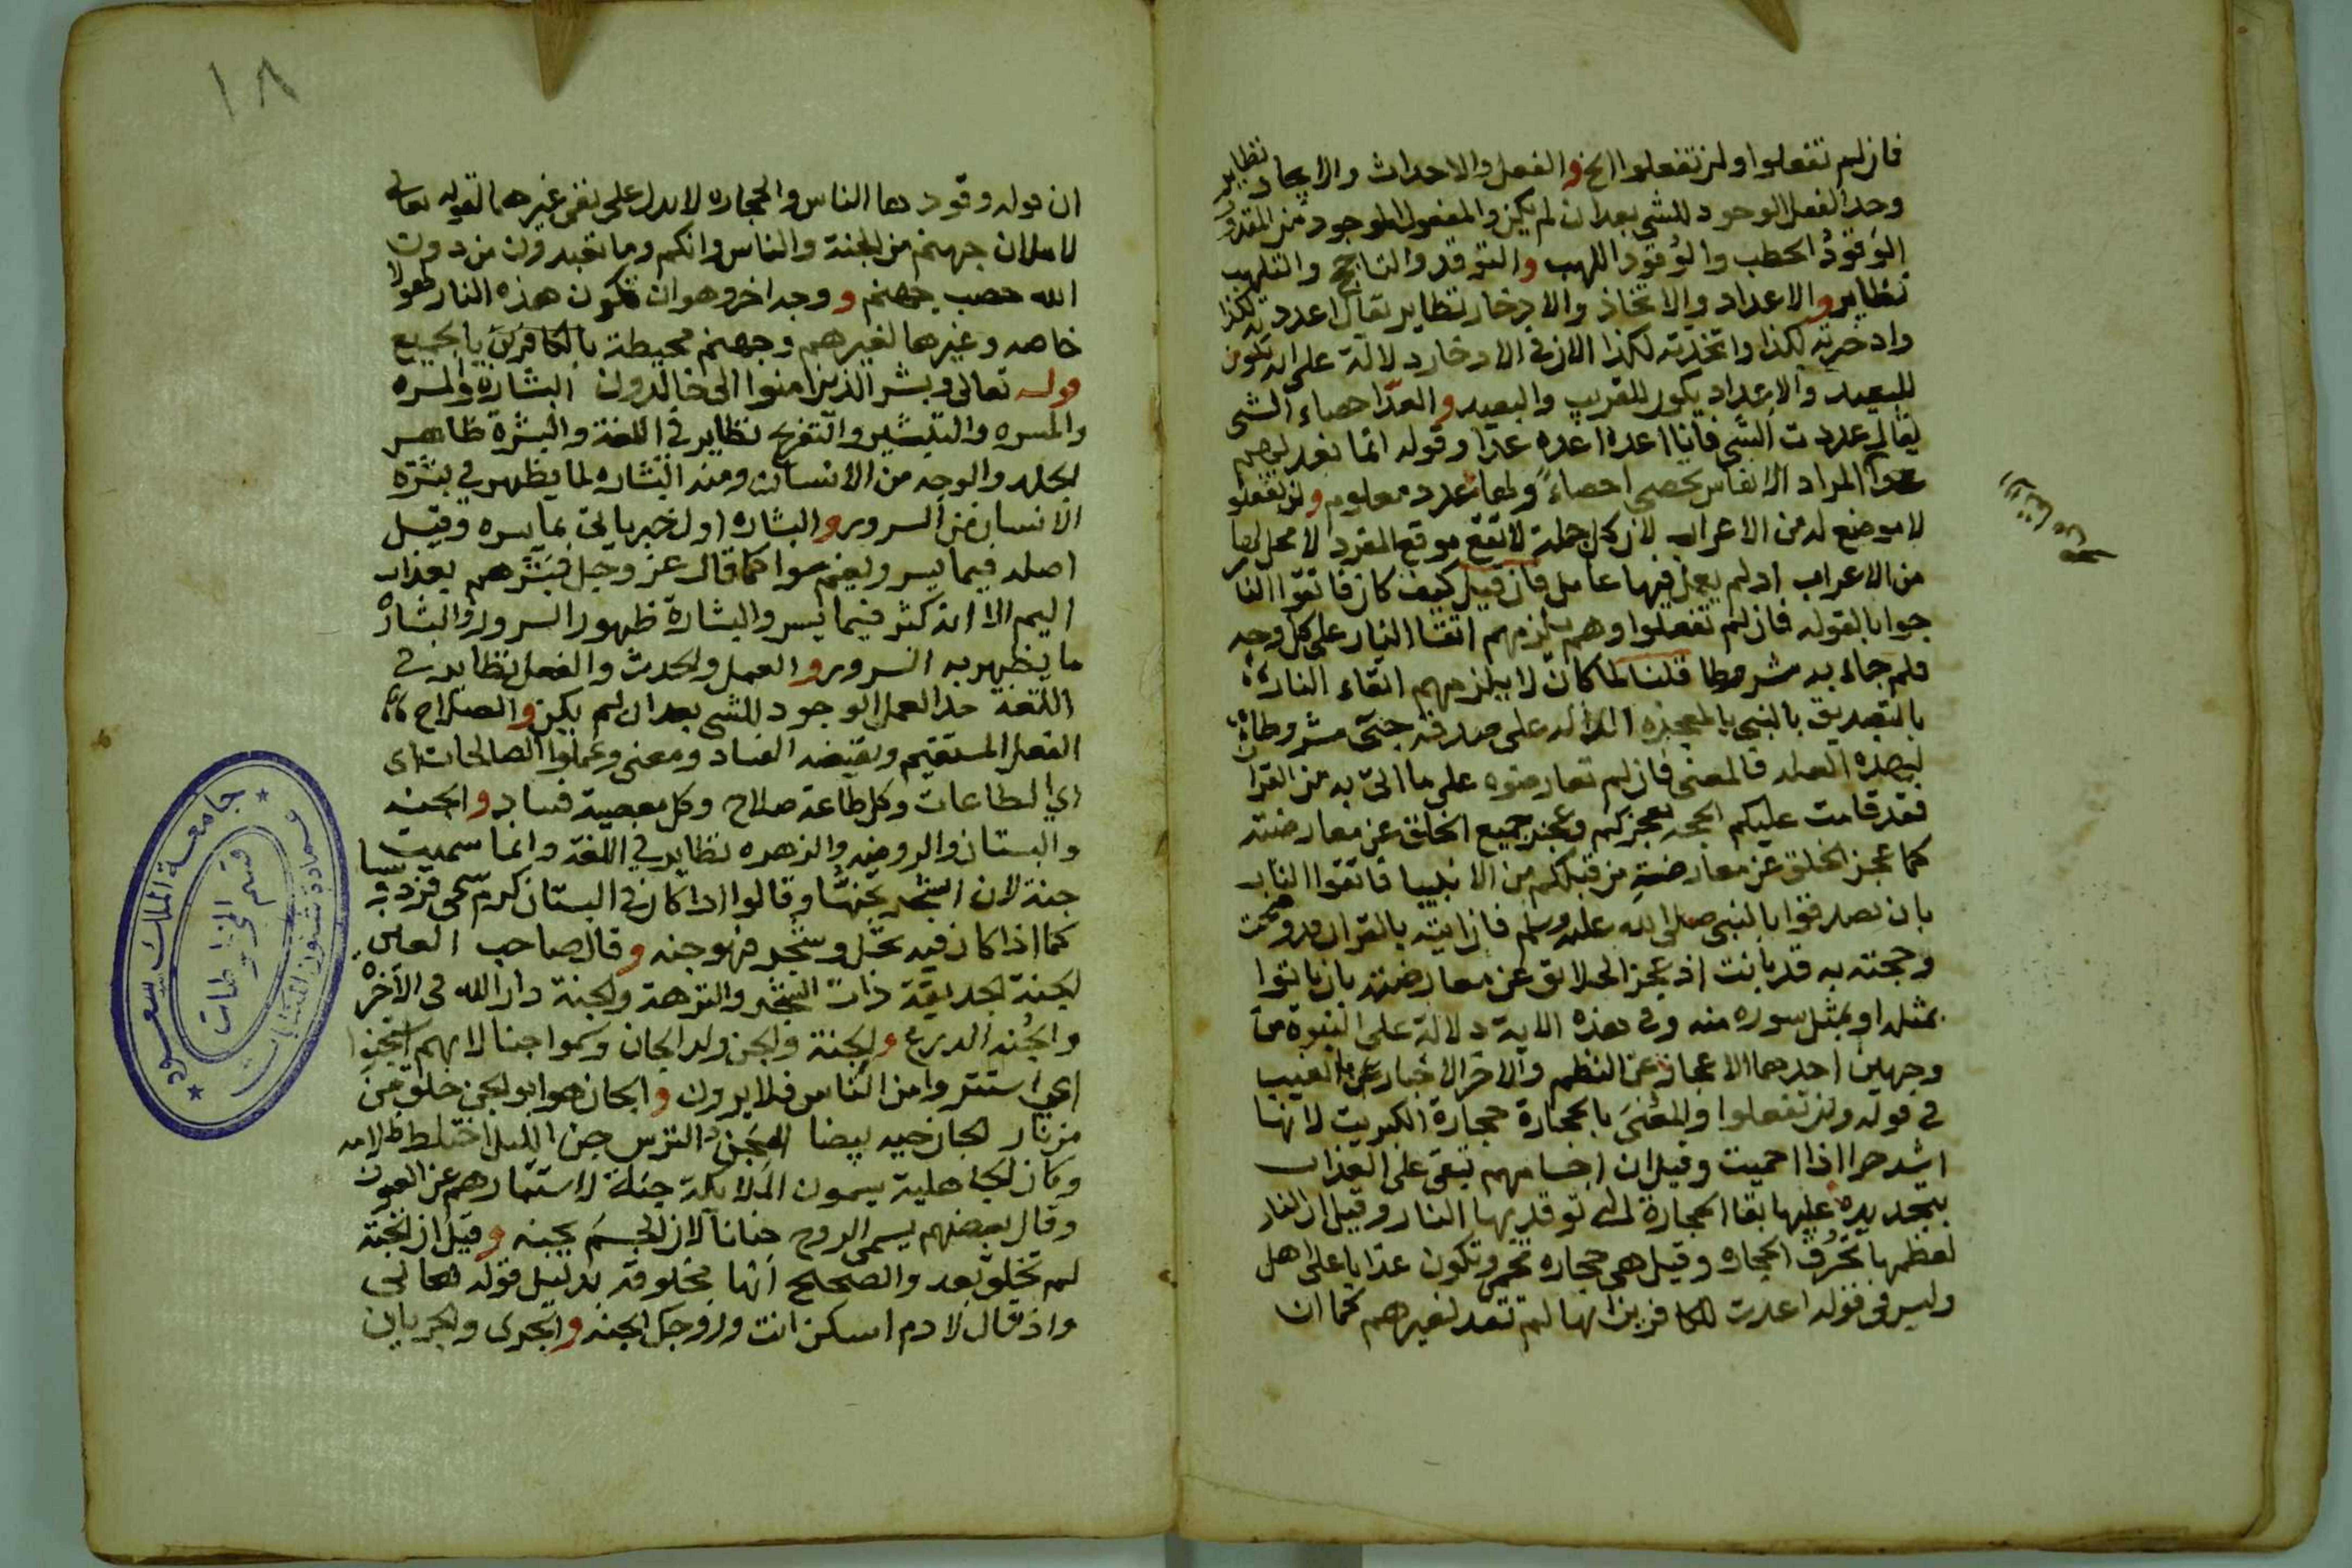 فان لم تفعلوا ولن تفعلوا الخ والفعل والاحداث والايجاد نظاير
وحد الفعل الوجود للشي بعد ان لم يكن والمفعول الموجود من المقدور
الوَقودُ الحطب والوُقود اللهب والتوقد والتاجج والتلهب
نظاير والاعداد والاتخاذ والادخار نظاير يقال اعددته لكذا
وادخرته لكذا واتخذته لكذا الا ان في الادخار دلالة على انه تكون
للبعيد والاعداد يكون للقريب والبعيد والعدّ احصاء الشي
يقال عددت الشي فانا اعده اعده عدا وقوله انما نعد لهم
عدا المراد الانفاس يحصي احصاءً ولها عدد معلوم ولن تفعلوا
لا موضع له من الاعراب لان كل جملة لا تقع موقع المفرد لا محل لها
من الاعراب اذ لم يعمل فيها عامل فان قيل كيف كان فاتقوا النار
جوابا لقوله فان لم تفعلوا وهم يلزمهم اتقا النار على كل وجه
فلم جاء به مشروطا قلنا لما كان لا يلزمهم اتقاء النار
بالتصديق بالنبي بالمعجزه الدالة على صدقه حتى مشروطا
لهذه العله فالمعنى فان لم تعارضوه على ما اتى به من القران
فقد قامت عليكم الحجه بعجزكم وعجز جميع الخلق عن معارضته
كما عجز الخلق عن معارضة من قبلكم من الانبيا فاتقوا النار
بان تصدقوا بالنبي صلى الله عليه وسلم فان ايته بالقران قد وضحت
وحجته به قد بانت اذ عجز الخلايق عن معارضته بان ياتوا
بمثله او بمثل سوره منه وفي هذه الاية دلالة على النبوة من
وجهين احدهما الاعجاز عن النظم والاخر الاخبار عن الغيب
في قوله ولن تفعلوا والمعنىَ بالحجارة حجارة الكبريت لانها
اشد حرا اذا احميت وقيل ان اجسامهم تبقى على العذاب
بتجديده عليها بقا الحجارة التي توقد بها النار وقيل ان النار
لعظمها تحرق الحجاره وقيل هي حجاره تحمى وتكون عذابا على اهل
وليس في قوله اعدت للكافرين انها لم تعد لغيرهم كما ان
١٨
ان قوله وقودها الناس والحجاره لا يدل على نفي غيرهما لقوله تعالى
لاملان جهنم من الجنة والناس وانكم وما تعبدون من دون
الله حصب جهنم و وجه اخر وهو ان تكون هذه النار لهولا
خاصه وغيرها لغيرهم وجهنم محيطة بالكافرين بالجميع
قوله تعالى وبشر الذين امنوا الى خالدون البشارة والمسره
والمسره والتبشير والتفريح نظاير في اللغة والبشرة ظاهر
الجلد والوجه من الانسان ومنه البشاره لما يظهر في بشرة
الانسان من السرور والبشاره اول خبر ياتي بما يسره وقيل
اصله فيما يسر ويغم سوا كما قال عز وجل فبشرهم بعذاب
اليم الا انه كثر فيما يسر والبشارة ظهور السرور والبشارة
ما يظهر به السرور والعمل والحدث والفعل نظاير في
اللغة حد العمل الوجود للشي بعد ان لم يكن والصلاح
الفعل المستقيم ونقيضه الفساد ومعنى وعملوا الصالحات اي
اي الطاعات وكل طاعة صلاح وكل معصية فساد والجنه
والبستان والروضه والزهره نظاير في اللغة وانما سميت
جنة لان الشجر يجنها وقالوا اذا كان في البستان كرم سمي فردوسا
كما اذا كان فيه نخل وشجر فهو جنه وقال صاحب العين
الجنة الحديقة ذات الشجر والنزهة والجنة دار الله في الاخره
والجُنه الدرع والجنة والجن ولد الجان وسموا جنا لانهم استجنوا
اي استتروا من الناس فلا يرون والجان هو ابو الجن خلق من
من نار الجان حيه بيضا المجن الترس جن الليل اختلط ظلامه
وكان الجاهلية يسمون الملايكة جنة لاستتارهم عن العيون
وقال بعضهم يسمى الروح جنانا لان الجسم يجنه وقيل ان الجنة
لم تخلق بعد والصحيح انها مخلوقه بدليل قوله تعالى
واذ قال لادم اسكن انت وزوجك الجنه والجرى والجريان
جامعة الملك سعود
عمادة شئون المكتبات
قسم المخطوطات